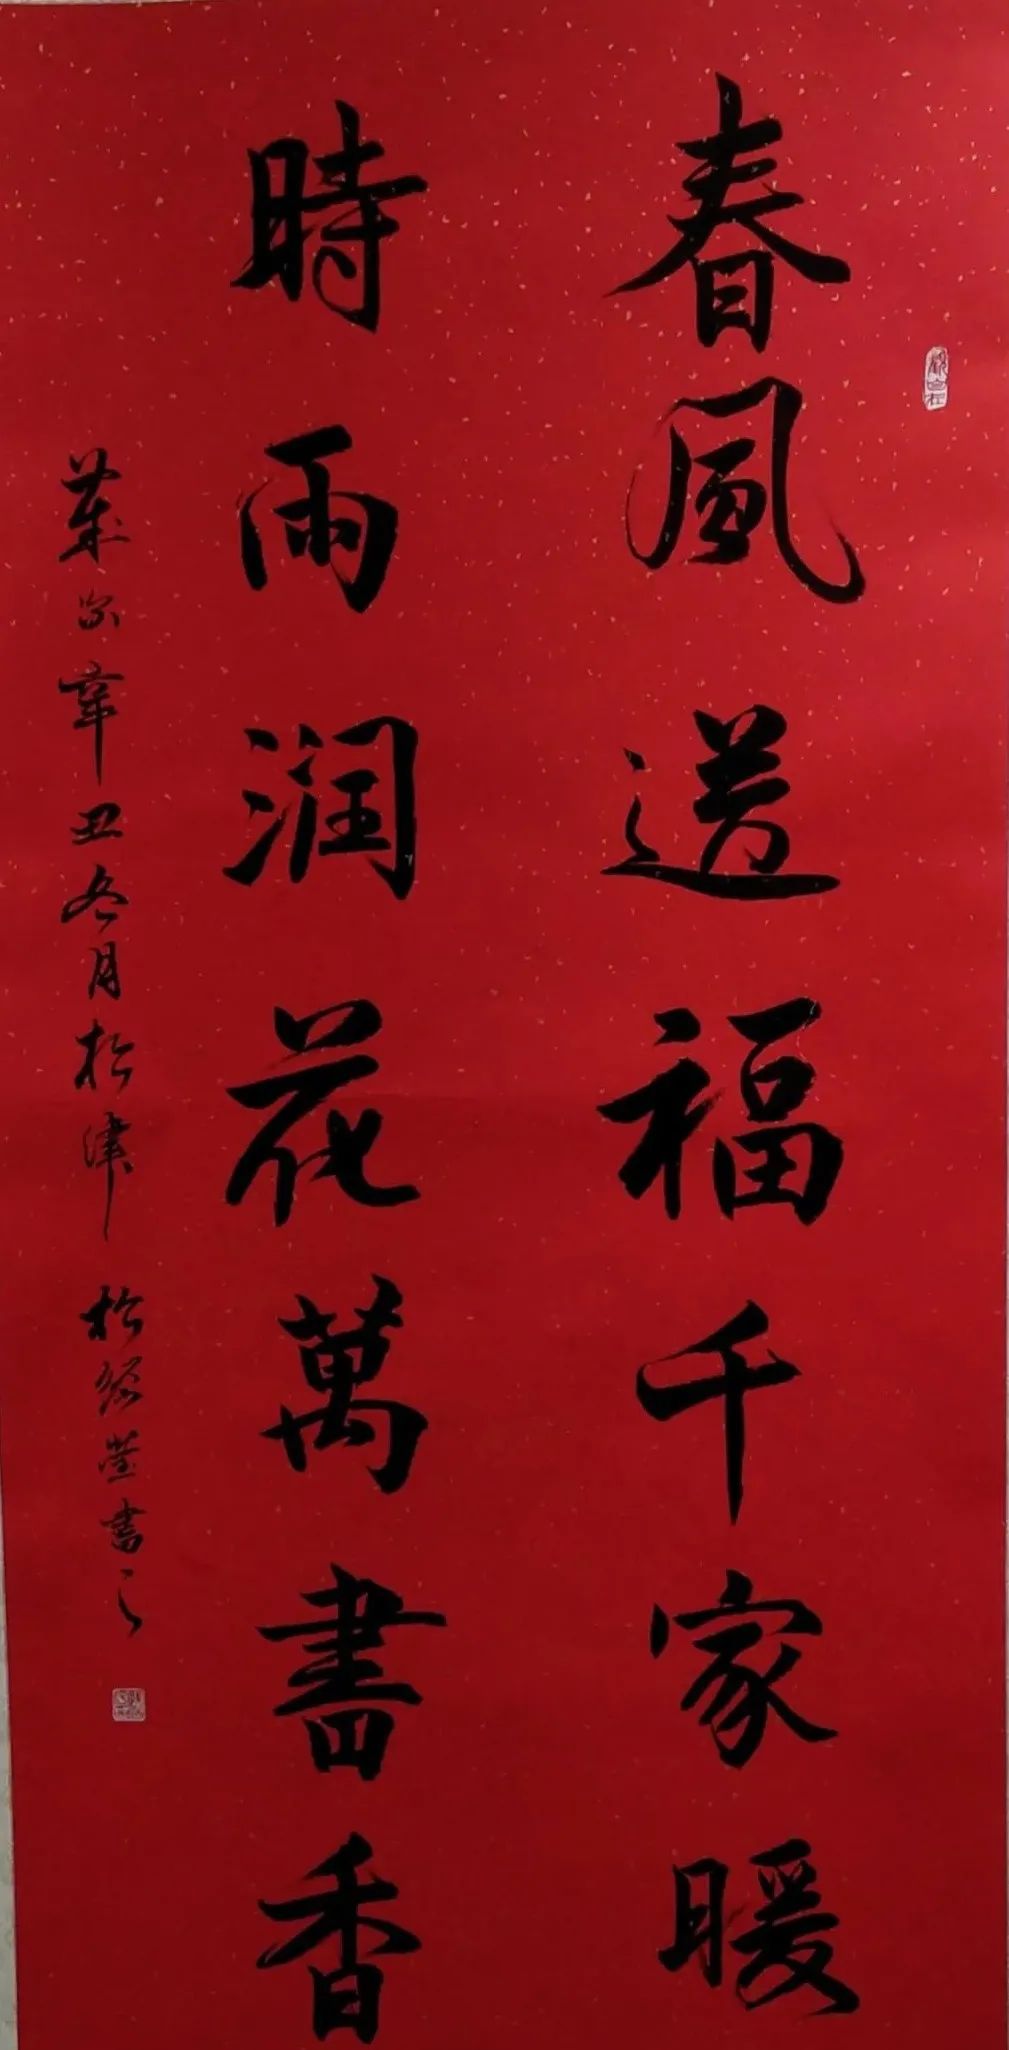 春風送福千家暖
時雨润花萬書香
歲次辛丑冬月於津
書之